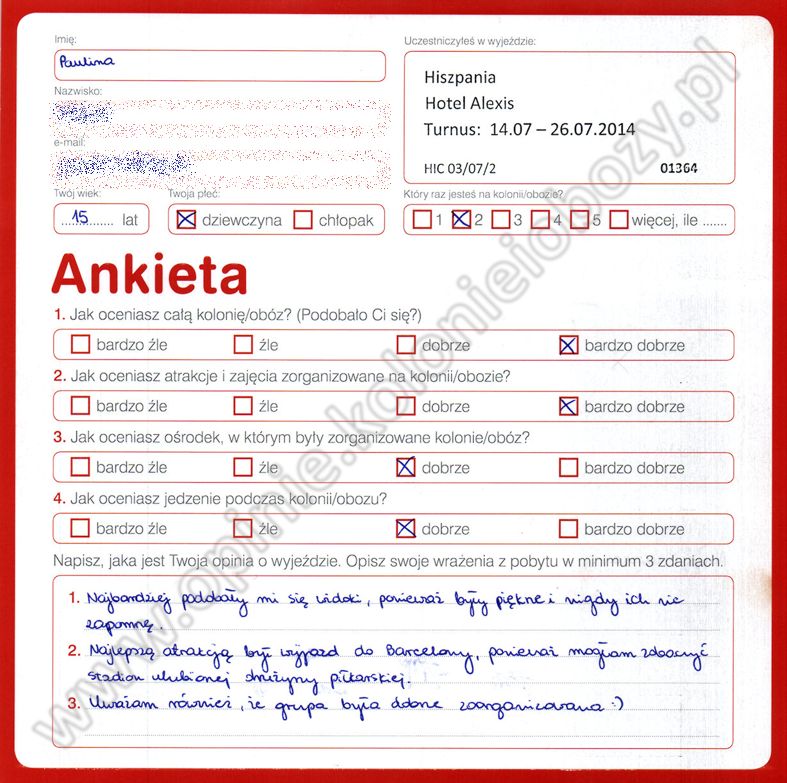 Imię:
Paulina
Uczestniczyłeś w wyjeździe:
Hiszpania
Hotel Alexis
Turnus: 14.07 – 26.07.2014
HIC 03/07/2 01364
Nazwisko:
e-mail:
Twój wiek:
15 lat
Twoja płeć:
dziewczyna chłopak
Który raz jesteś na kolonii/obozie?
1 2 3 4 5 więcej, ile .......
Ankieta
1. Jak oceniasz całą kolonię/obóz? (Podobało Ci się?)
bardzo źle źle dobrze bardzo dobrze
2. Jak oceniasz atrakcje i zajęcia zorganizowane na kolonii/obozie?
bardzo źle źle dobrze bardzo dobrze
3. Jak oceniasz ośrodek, w którym były zorganizowane kolonie/obóz?
bardzo źle źle dobrze bardzo dobrze
4. Jak oceniasz jedzenie podczas kolonii/obozu?
bardzo źle źle dobrze bardzo dobrze
Napisz, jaka jest Twoja opinia o wyjeździe. Opisz swoje wrażenia z pobytu w minimum 3 zdaniach.
1. Najbardziej podobały mi się widoki, ponieważ były piękne i nigdy ich nie
zapomnę.
2. Najlepszą atrakcją był wyjazd do Barcelony, ponieważ mogłam zobaczyć
stadion ulubionej drużyny piłkarskiej.
3. Uważam również, że grupa była dobrze zoorganizowana :)
www.opinie.kolonieiobozy.pl